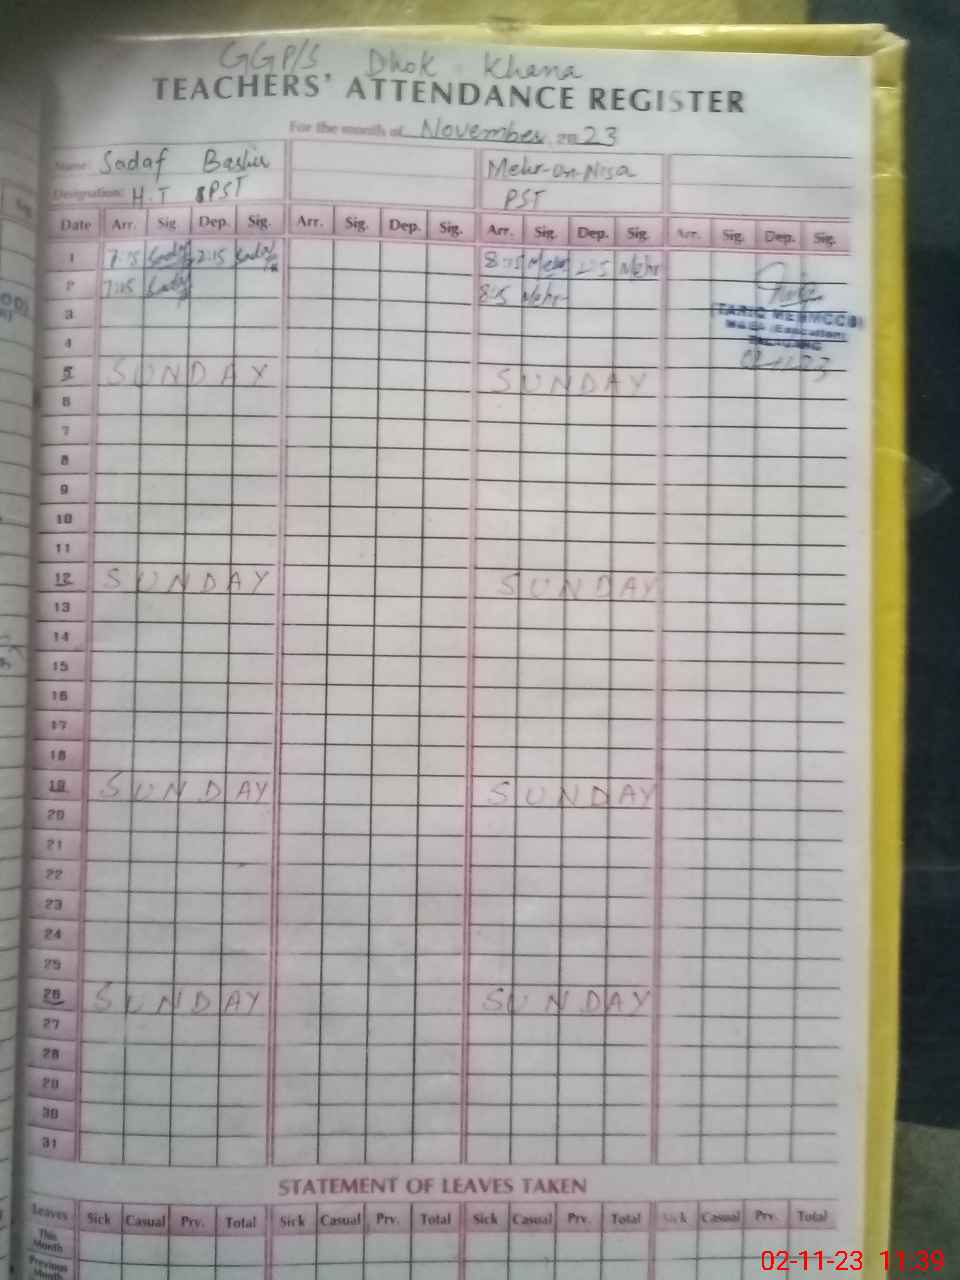 GGP/S Dhok Khana
TEACHERS' ATTENDANCE REGISTER
For the month of November 2023
Name: Sadaf Bashir Mehr-un-Nisa
Designation: H.T PST PST
Date Arr. Sig Dep. Sig. Arr. Sig. Dep. Sig. Arr. Sig. Dep. Sig. Arr. Sig. Dep. Sig.
1 2:15 8:15 Mehr 2:15 Mehr
2 8:15 Mehr
3
4
5 SUNDAY SUNDAY
6
7
8
9
10
11
12 SUNDAY SUNDAY
13
14
15
16
17
18
19 SUNDAY SUNDAY
20
21
22
23
24
25
26 SUNDAY SUNDAY
27
28
29
30
31
STATEMENT OF LEAVES TAKEN
Leaves Sick Casual Prv. Total Sick Casual Prv. Total Sick Casual Prv. Total Sick Casual Prv. Total
This Month
Previous Month
02-11-23 11:39